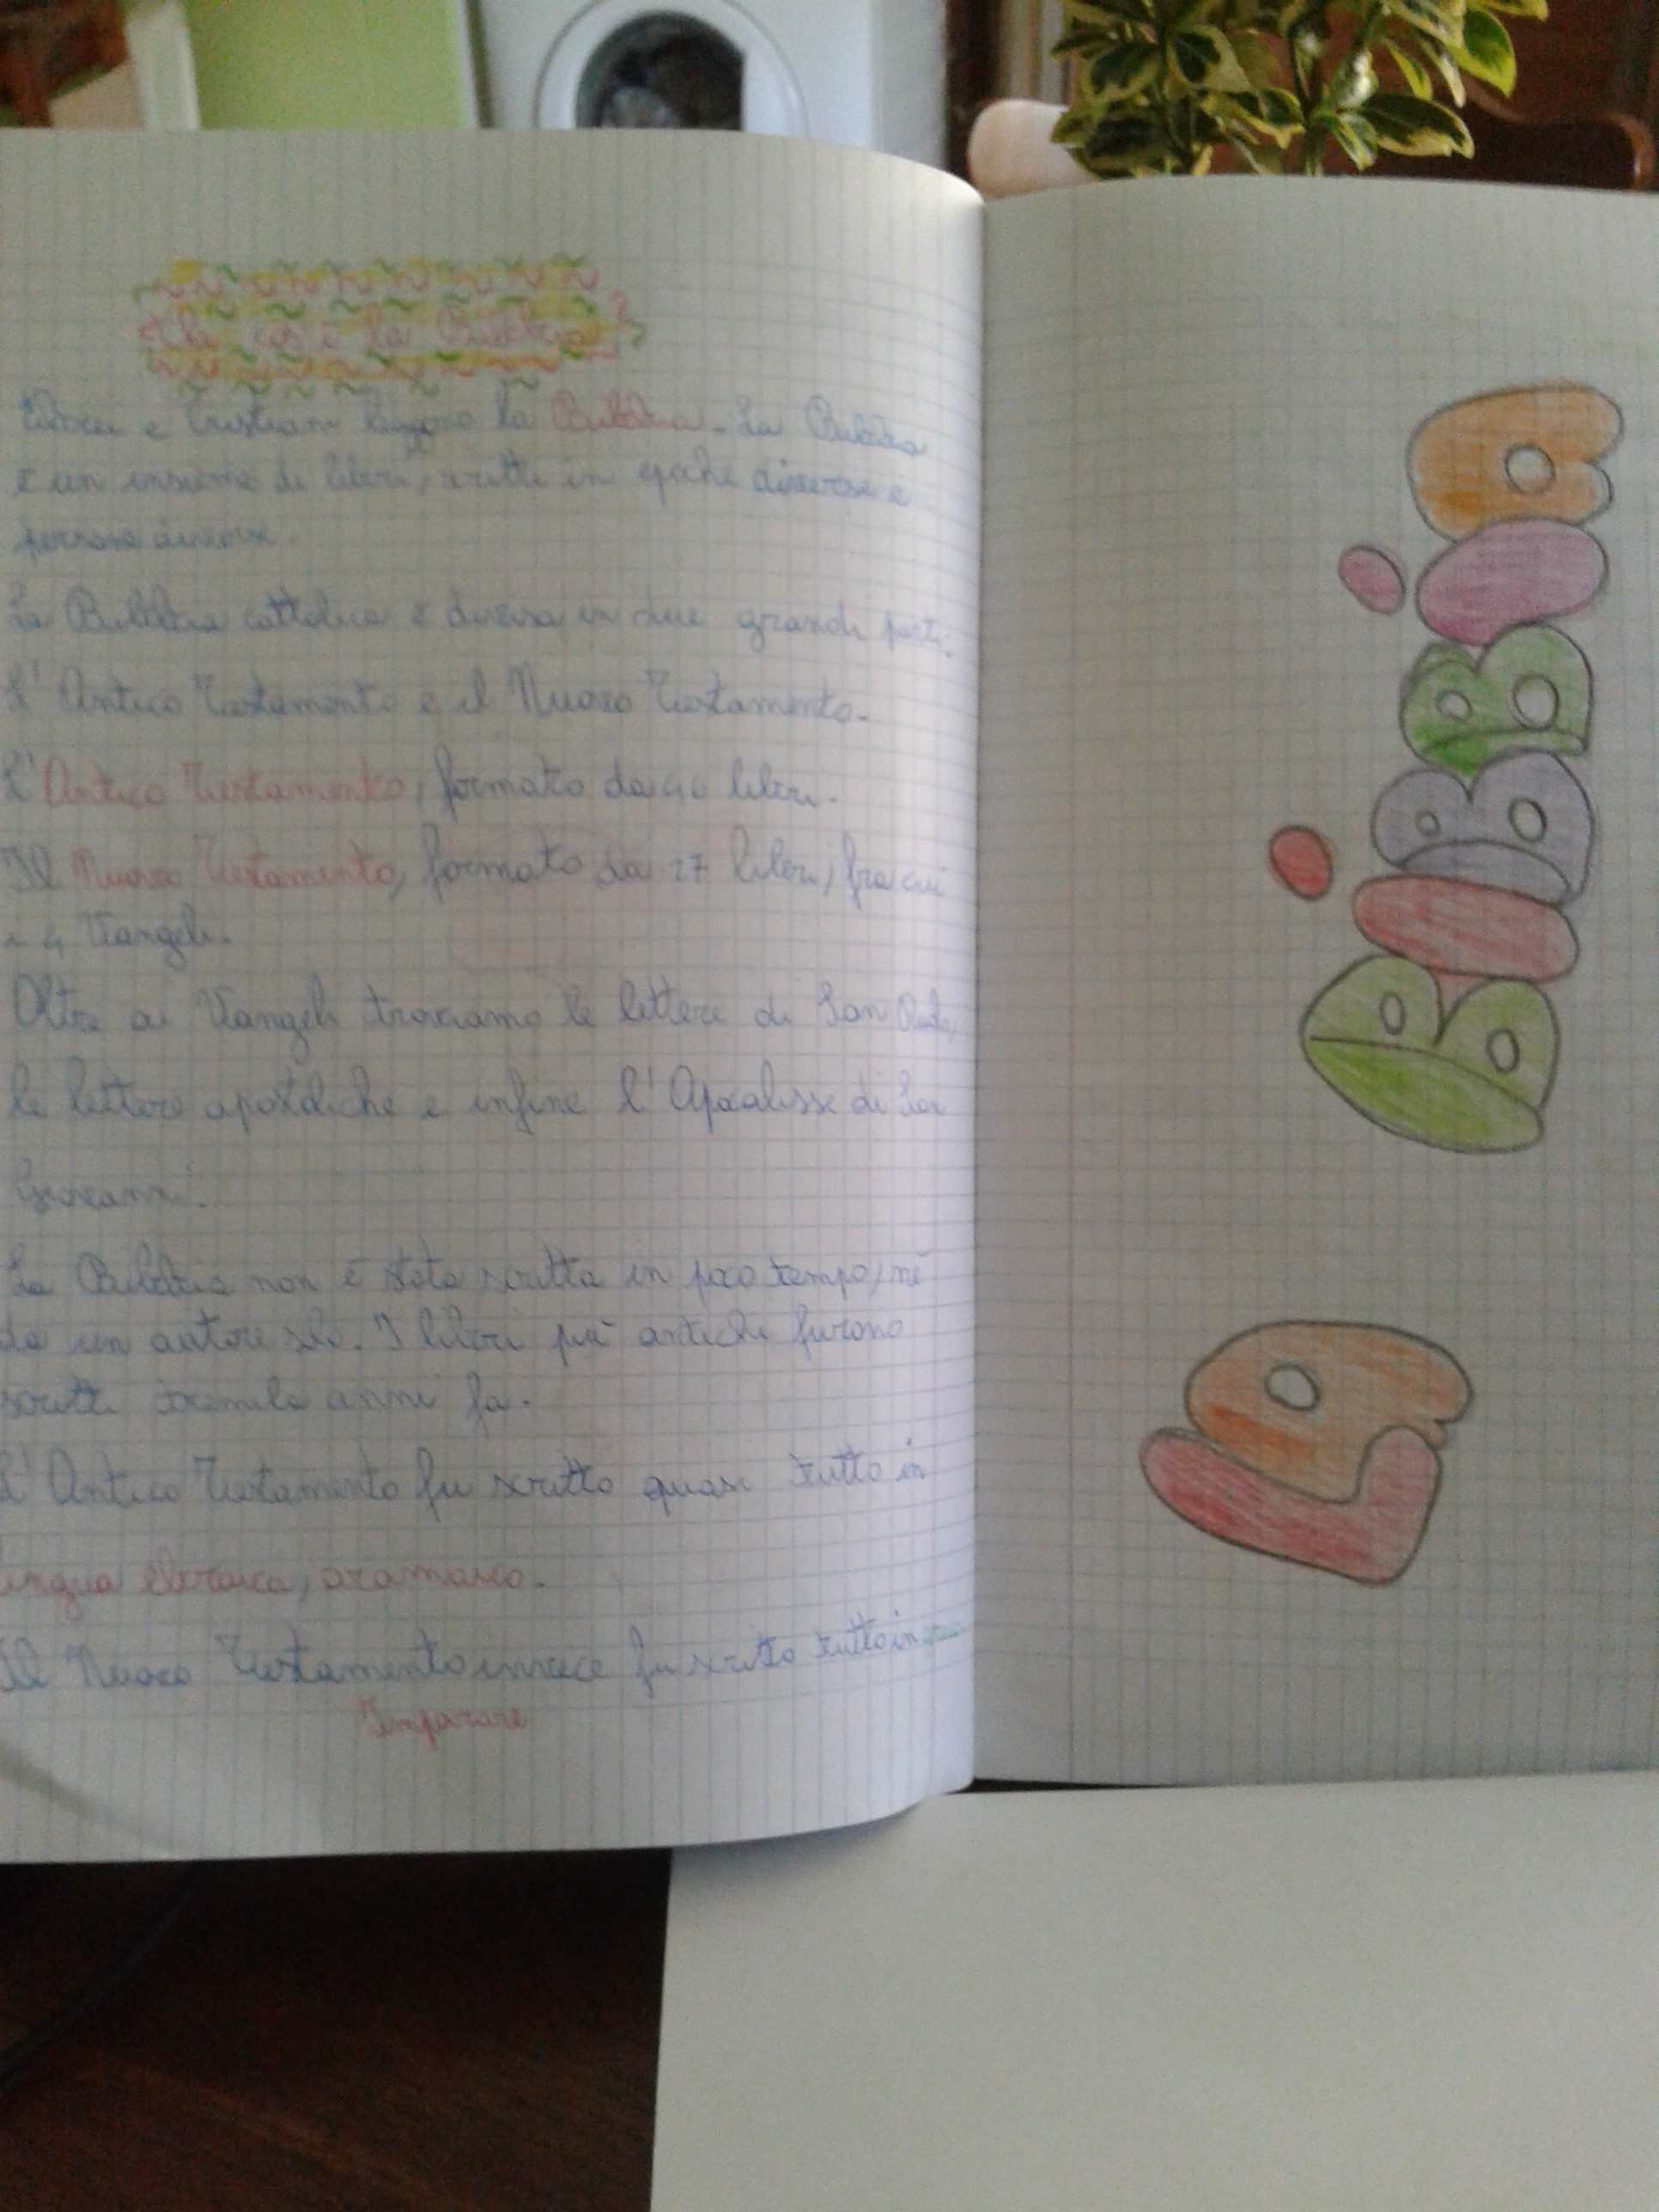 Che cos'è la Bibbia?
Ebrei e Cristiani leggono la Bibbia. La Bibbia
è un insieme di libri, scritti in epoche diverse e
persone diverse.
La Bibbia cattolica è divisa in due grandi parti:
L'Antico Testamento e il Nuovo Testamento.
L'Antico Testamento, formato da 46 libri.
Il Nuovo Testamento, formato da 27 libri, fra cui
i 4 Vangeli.
Oltre ai Vangeli troviamo le lettere di San Paolo,
le lettere apostoliche e infine l'Apocalisse di San
Giovanni.
La Bibbia non è stata scritta in poco tempo, né
da un autore solo. I libri più antichi furono
scritti tremila anni fa.
L'Antico Testamento fu scritto quasi tutto in
lingua ebraica, aramaico.
Il Nuovo Testamento invece fu scritto tutto in
Imparare
La BiBBia